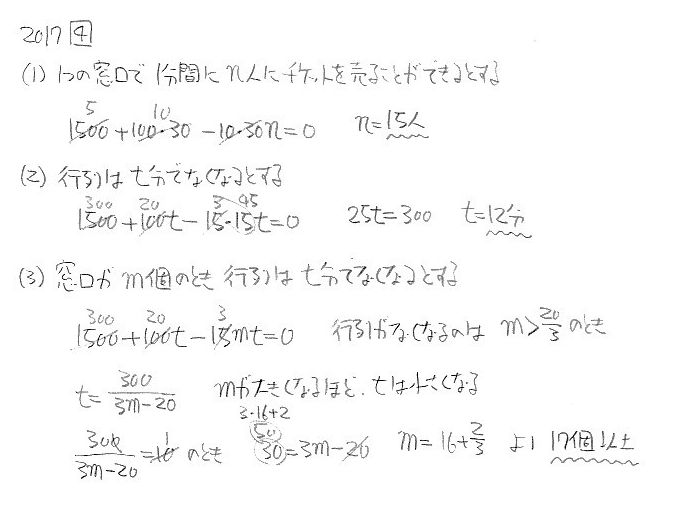 2017 4
(1) 1つの窓口で 1分間に n人にチケットを売ることができるとする
5 10
1500+100・30-10・30n=0 n=15人
(2) 行列は t分でなくなるとする
300 20 3 45
1500+100t-15・15t=0 25t=300 t=12分
(3) 窓口が m個のとき 行列は t分でなくなるとする
300 20 3
1500+100t-15mt=0 行列がなくなるのは m>20/3 のとき
t=300/(3m-20) mが大きくなるほど、tは小さくなる
3・16+2
300/(3m-20)=10 のとき 50 30=3m-20 m=16+2/3 より 17個以上